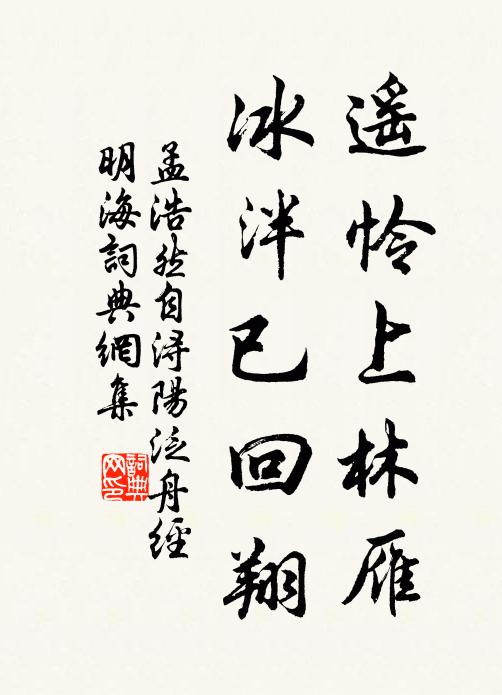 遥怜上林雁
冰泮已回翔
孟浩然自浔陽泛舟經
明海詞典網集
詞典
网印